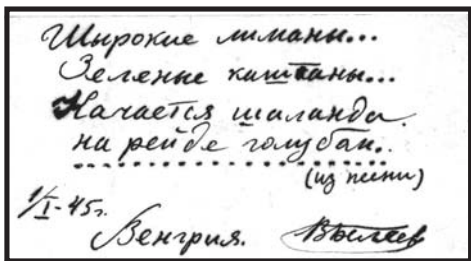 Широкие лиманы...
Зеленые каштаны...
Качается шаланда
на рейде голубом..
(из песни)
1/I-45г.
Венгрия.